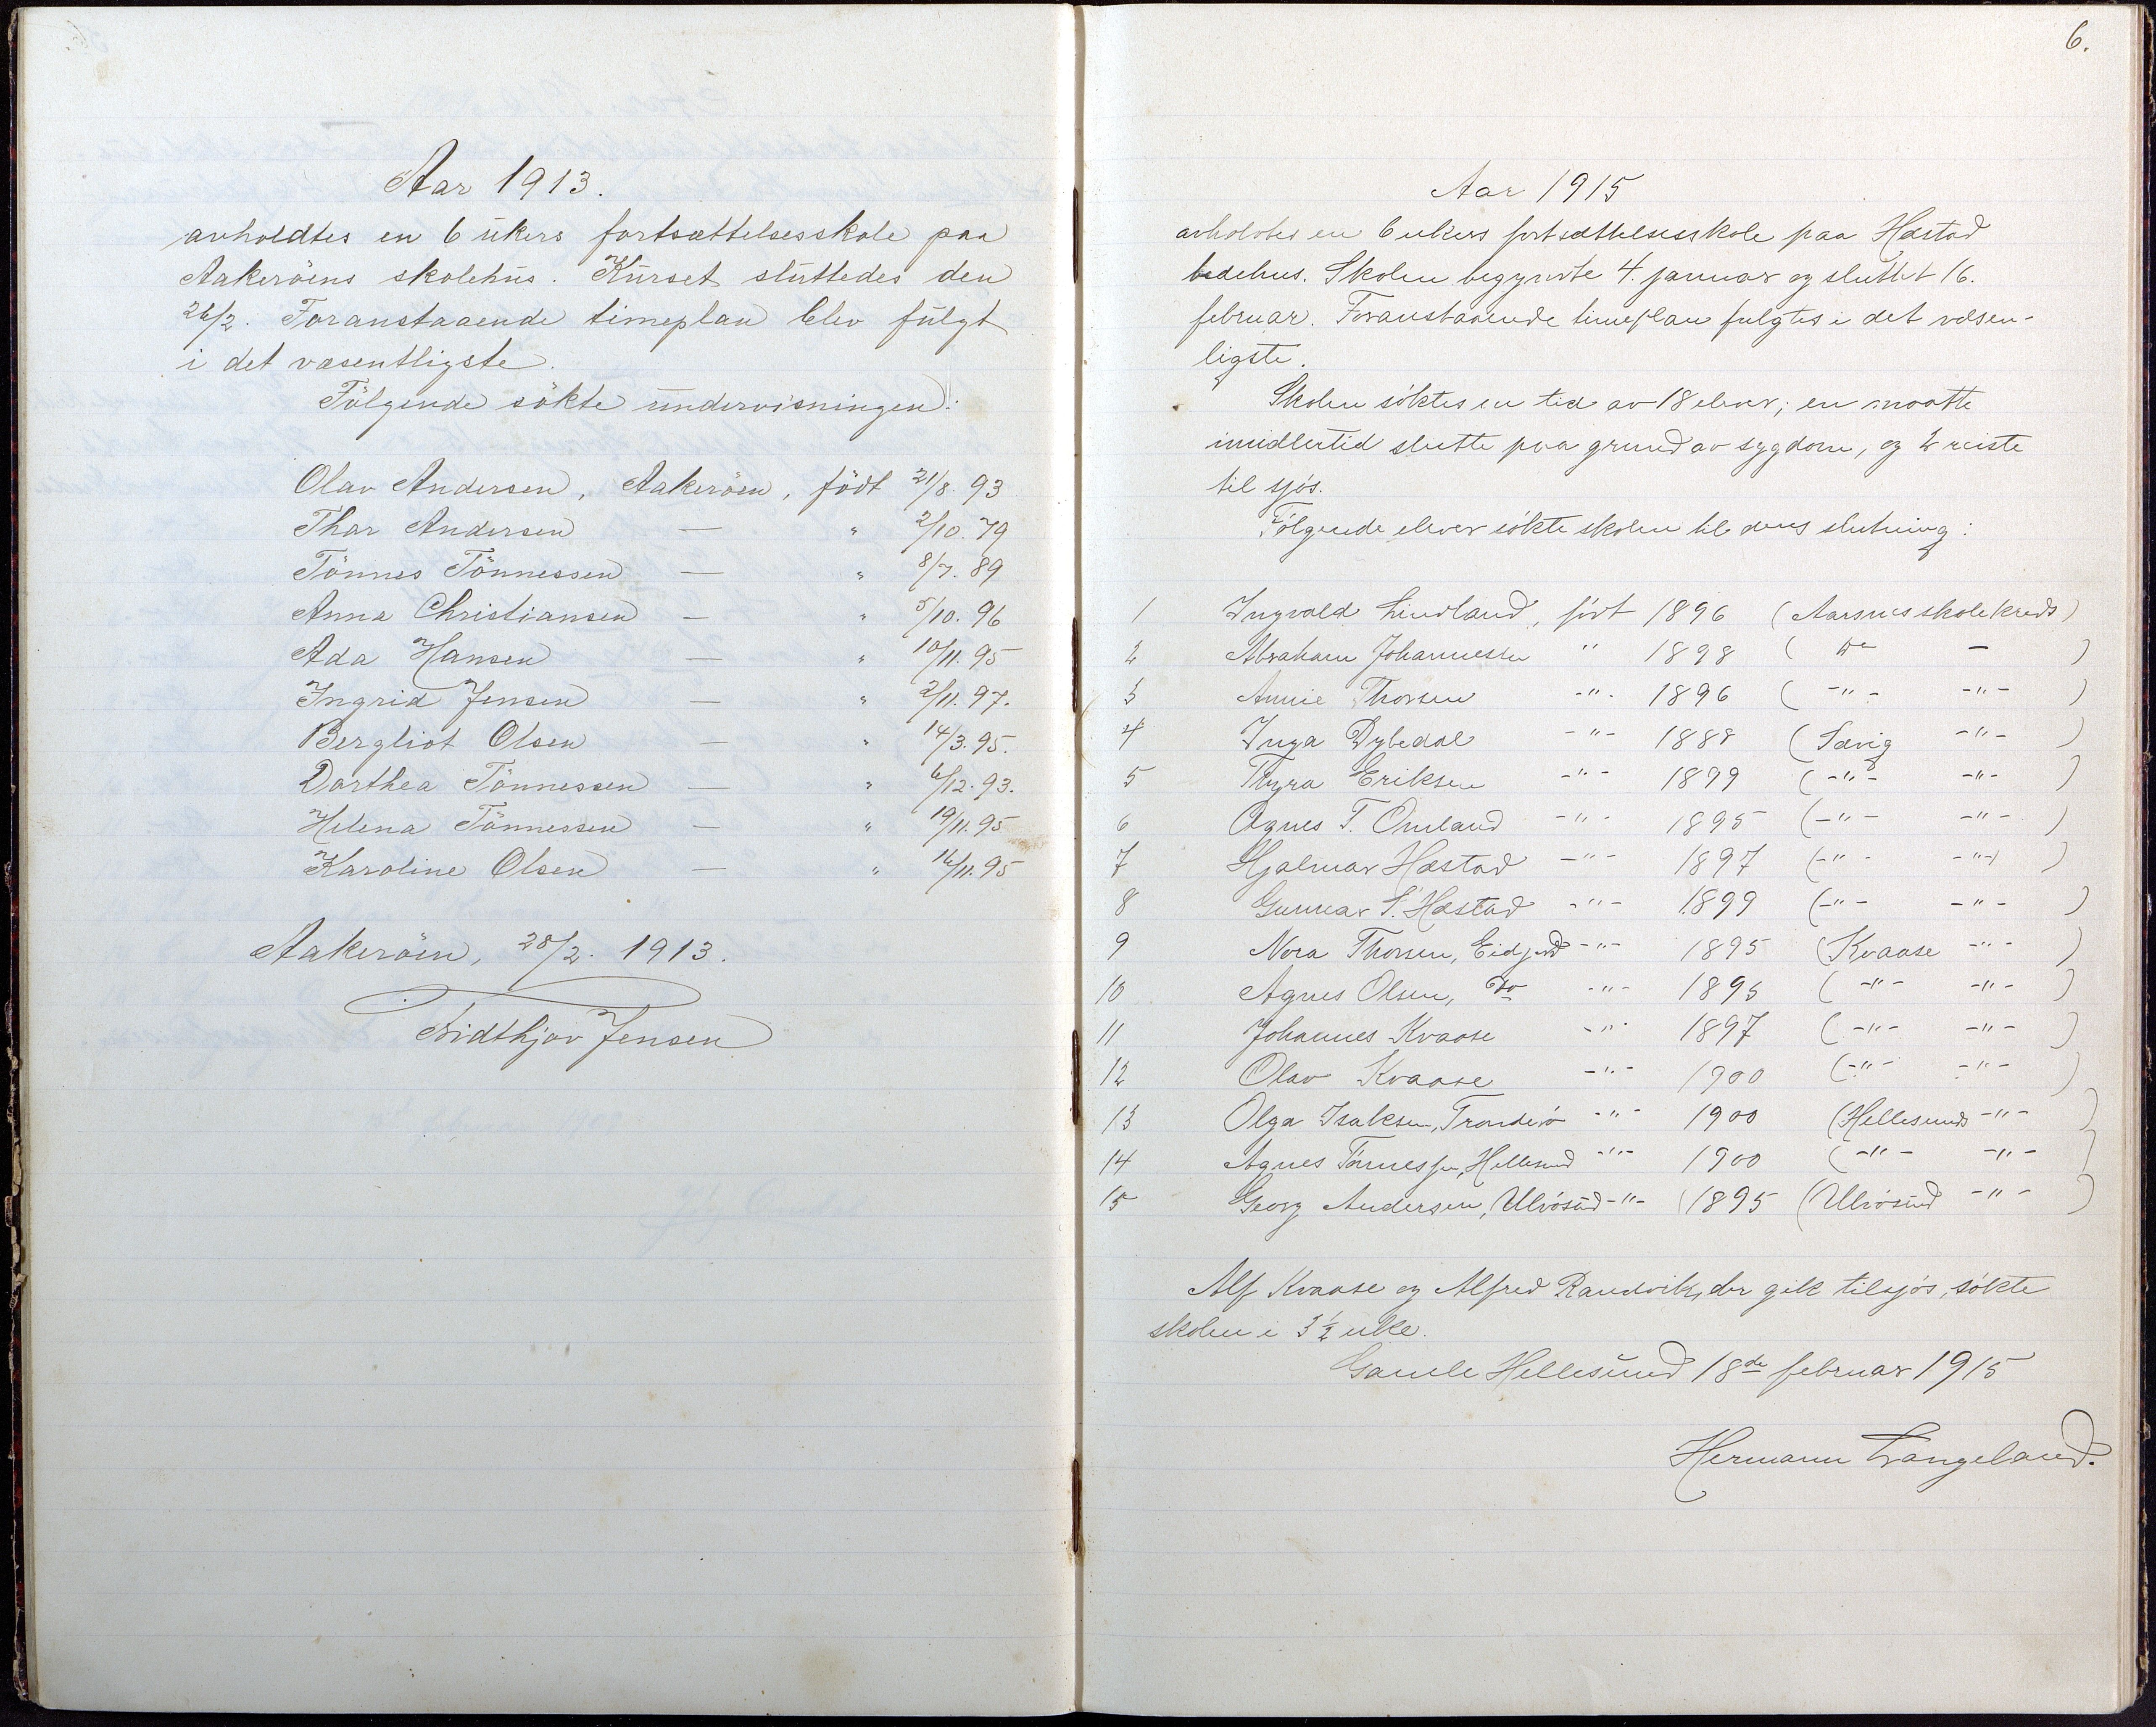 Aar 1913.
avholdtes en 6 ukers fortsættelsesskole paa
Aakeröens skolehus. Kurset sluttedes den
26/2. Foranstaaende timeplan blev fulgt
i det væsentligste.
Fölgende sökte undervisningen:
Olav Andersen, Aakeröen, födt 21/8. 93
Thor Andersen — " 2/10. 79
Tönnes Tönnessen — " 8/7. 89
Anna Christiansen — " 5/10. 96
Ada Hansen — " 10/11. 95
Ingrid Jensen — " 2/11. 97.
Bergliot Olsen — " 14/3. 95.
Dorthea Tönnessen — " 6/12. 93.
Helena Tönnessen — " 19/11. 95
Karoline Olsen — " 16/11. 95
Aakeröen, 28/2. 1913.
Fridthjov Jensen
6.
Aar 1915
avholdtes en 6 ukers fortsættelsesskole paa Hæstad
bedehus. Skolen begyndte 4. januar og sluttet 16.
februar. Foranstaaende timeplan fulgtes i det væsen-
ligste.
Skolen söktes en tid av 18 elever; en maatte
imidlertid slutte paa grund av sygdom, og 2 reiste
til sjös.
Følgende elever søkte skolen til dens slutning:
1 Ingvald Lindland, født 1896 (Aarsnes skolekreds)
2 Abraham Johannessen " 1898 ( do — )
3 Annie Thorsen -"- 1896 ( -"- -"- )
4 Inga Dybedal -"- 1888 (Sævig -"- )
5 Thyra Eriksen -"- 1899 ( -"- -"- )
6 Agnes T. Omland -"- 1895 ( -"- -"- )
7 Hjalmar Hæstad -"- 1897 ( -"- -"- )
8 Gunnar S. Hæstad -"- 1899 ( -"- -"- )
9 Nora Thorsen, Eidjord -"- 1895 (Kvaase -"- )
10 Agnes Olsen, do -"- 1895 ( -"- -"- )
11 Johannes Kvaase -"- 1897 ( -"- -"- )
12 Olav Kvaase -"- 1900 ( -"- -"- )
13 Olga Isaksen, Tronderø -"- 1900 (Hellesunds -"- )
14 Agnes Tönnessen, Hellesund -"- 1900 ( -"- -"- )
15 Georg Andersen, Ulvøsund -"- 1895 (Ulvøsund -"- )
Alf Kvaase og Alfred Randvik, der gik tilsjøs, søkte
skolen i 3½ uke.
Gamle Hellesund 18de februar 1915
Hermann Langeland.